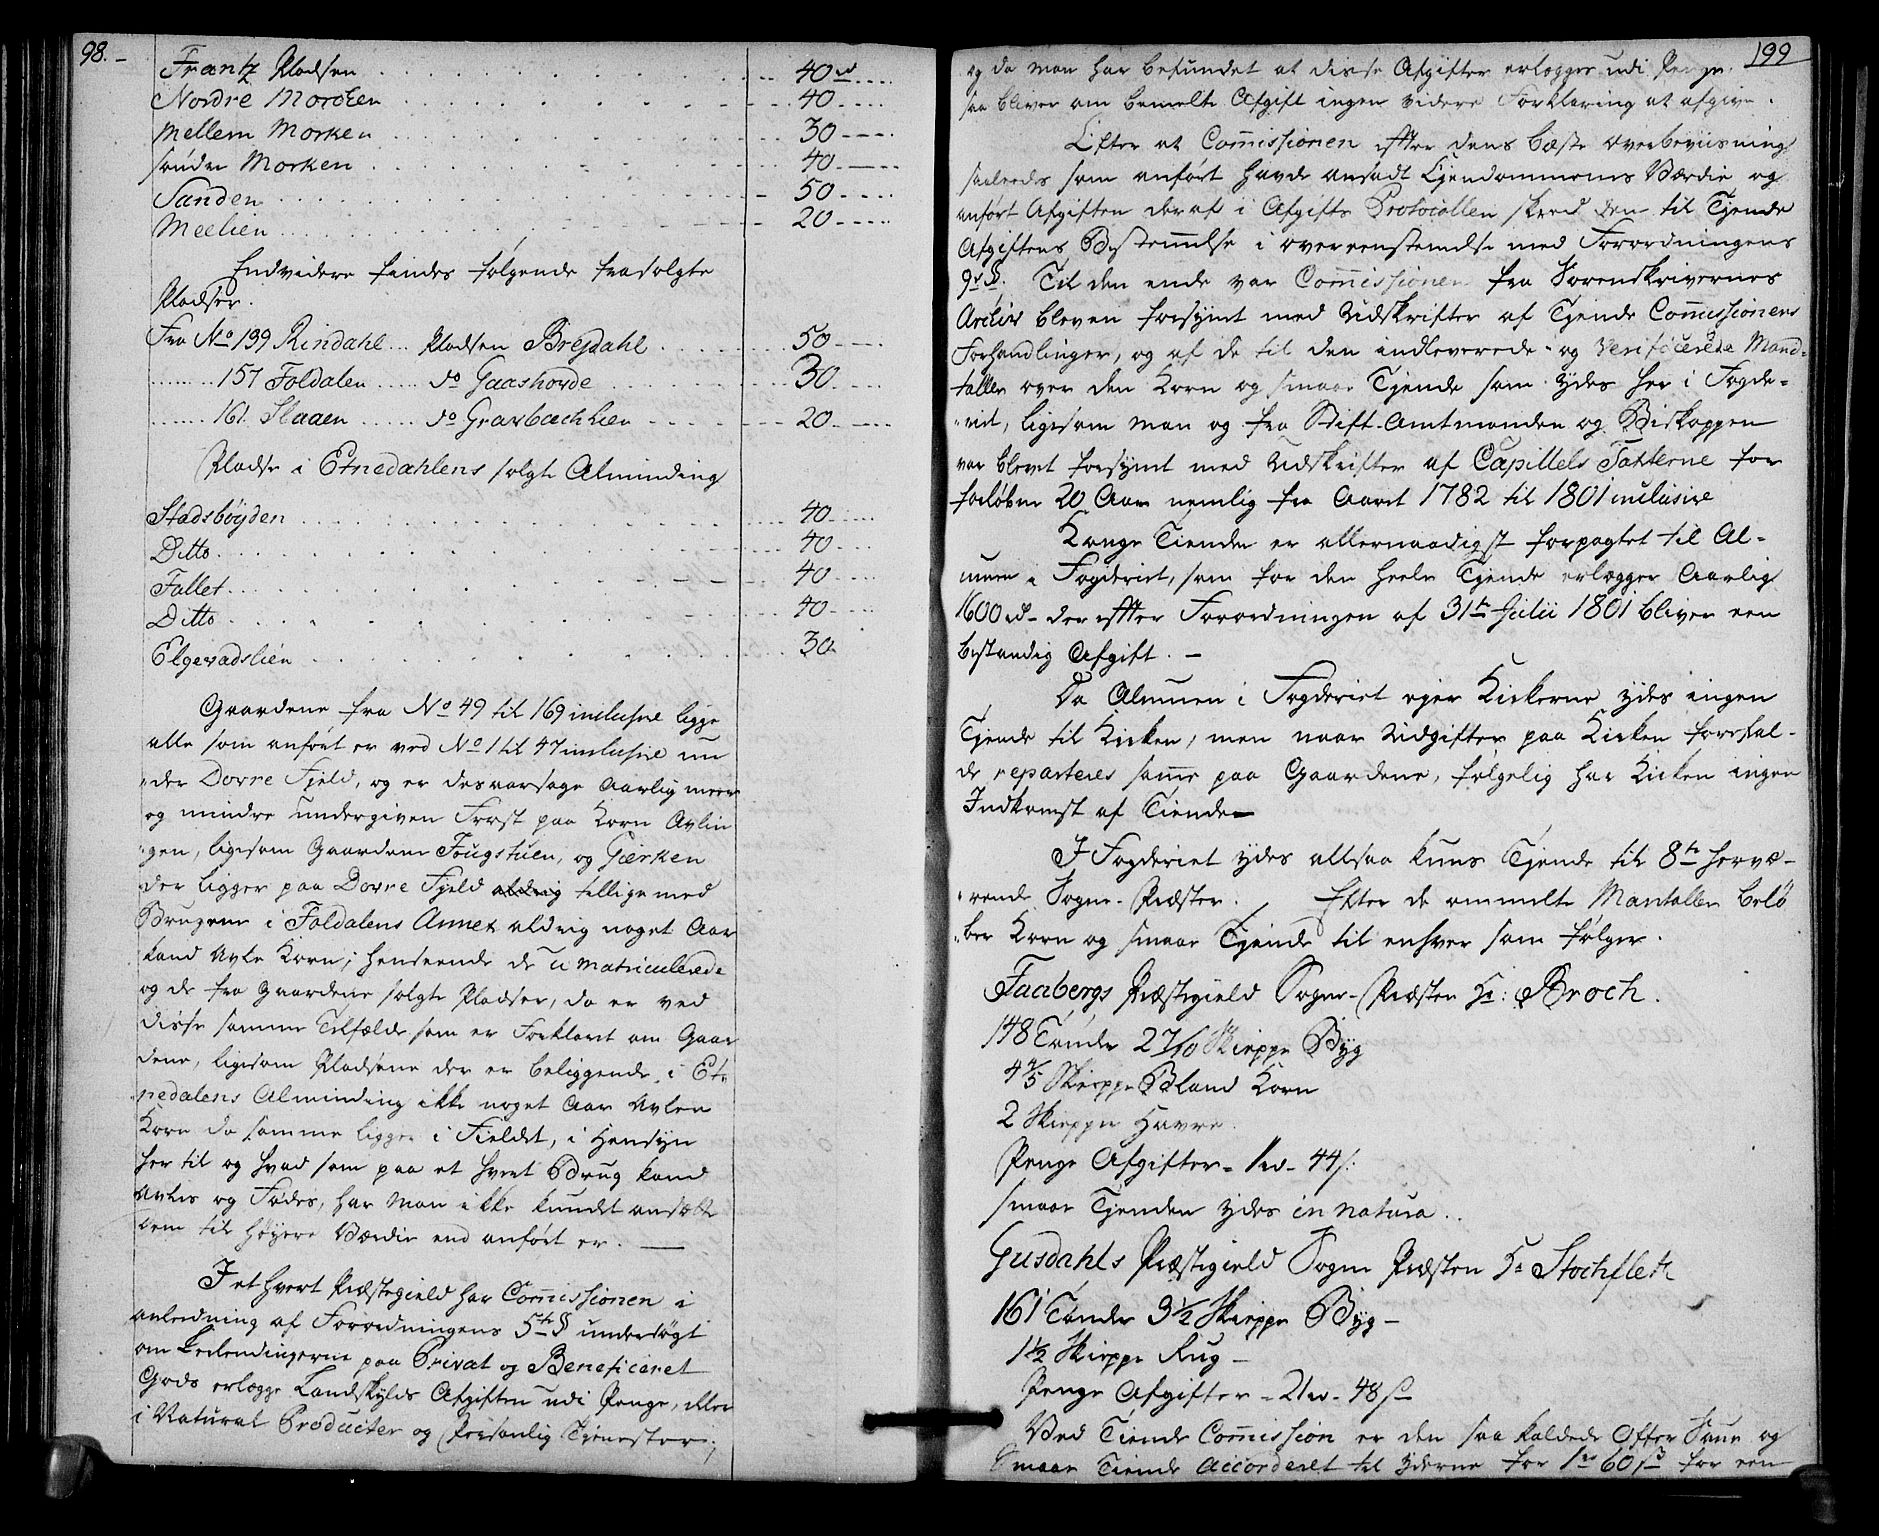 98.
Frantz Pladsen 40 rd
Nordre Morken 40
Mellem Morken 30
søndre Morken 40
Sanden 50
Meelien 20
Endvidere findes følgende frasolgte
Pladser.
Fra No 139 Rindahl Pladsen Brejdahl 50
157 Foldalen do Gaashovde 30
161 Slaaen do Gravbachlien 20
Pladse i Etnedahlens solgte Alminding
Stadsbøyden 40
Ditto 40
Fallet 40
Ditto 40
Elgevadslien 30
Gaardene fra No 49 til 169 inclusive ligge
alle som anført er ved No 1 til 47 inclusive un
der Dovre Fjeld, og er desaarsage aarlig meer
og mindre undergiven Frost paa Korn Avlin
gen, ligesom Gaardene Fougstuen, og Gierken
der ligger paa Dovre Fjeld aldrig tillige med
Brugene i Foldalens Annex aldrig noget Aar
kand avle Korn; henseende de umatriculerede
og de fra Gaardene solgte Pladser, da er ved
disse samme Tilfælde som er Forklaret om Gaar
dene, ligesom Pladsene der er beliggende i Et
nedalens Alminding ikke noget Aar avler
Korn da samme ligger i Fieldet, i Hensyn
her til og hvad som paa et hvert Brug kand
avles og Fødes, har man ikke kundet ansætte
dem til høyere Værdie end anført er.
I et hvert Præstegield har Commissionen i
anledning af Forordningens 5te § undersøgt
om Leilendingerne paa Privat og Beneficeret
Gods erlægge Landskylds Afgiften udi Penge, eller
i Natural Producter og Personlig Tjenester;
199
og da man har befundet at disse Afgifter erlægges udi Penge.
saa bliver om bemelte Afgift ingen videre Forklaring at afgive.
Efter at Commissionen efter dens bæste overbeviisning
saaleeds som anført havde ansadt Ejendommenes Værdie og
anført Afgiften deraf i Afgifts Protocollen skeed den til Tjende
Afgiftens Bestemmelse i overeenstemmelse med Forordningens
9de §. Til den ende var Commissionen fra Sorenskrivernes
Archiv bleven forsynt med Udskrifter af Tjende Commissionens
Forhandlinger, og af de til den indleverede og Verificerede Mand-
taller over den Korn og smaae Tjende som ydes her i Fogde-
riet, ligesom man og fra Stift-Amtmanden og Biskoppen
var blevet forsynt med Udskrifter af Capittels Taxterne for
forløbne 20 Aar nemlig fra Aaret 1782 til 1801 inclusive
Konge Tienden er allernaadigst forpagtet til Al-
muen i Fogderiet, som for den heele Tjende erlægger Aarlig
1600 rd der efter Forordningen af 31te Julii 1801 bliver een
bestandig Afgift.
Da Almuen i Fogderiet ejer Kirkerne ydes ingen
Tjende til Kirken, men naar Udgifter paa Kirken forefal-
de reparteres samme paa Gaardene, følgelig har Kirken ingen
Indkomst af Tiende
I Fogderiet ydes altsaa kuns Tjende til 8te hervæ-
rende Sogne-Præster. Efter de ommelte Mantaller belø
ber Korn og smaae Tjende til enhver som følger.
Faabergs Præstegield Sogne-Præsten Hr: Broch.
148 Tønder 2 7/10 Skieppe Byg
4 4/5 Skieppe Bland Korn
2 Skieppe Havre.
Penge Afgifter 1 rd 44 s:
smaae Tjenden ydes in natura.
Gusdahls Præstegield Sogne Præsten Hr Stochfleth
161 Tønder 3 1/2 Skieppe Byg
1 1/2 Skieppe Rug
Penge Afgifter 21 rd 48 s
Ved Tiende Commission er den saa kaldede Offer Smør og
Smaae Tiende accorderet til yderne for 1 rd 60 s for een